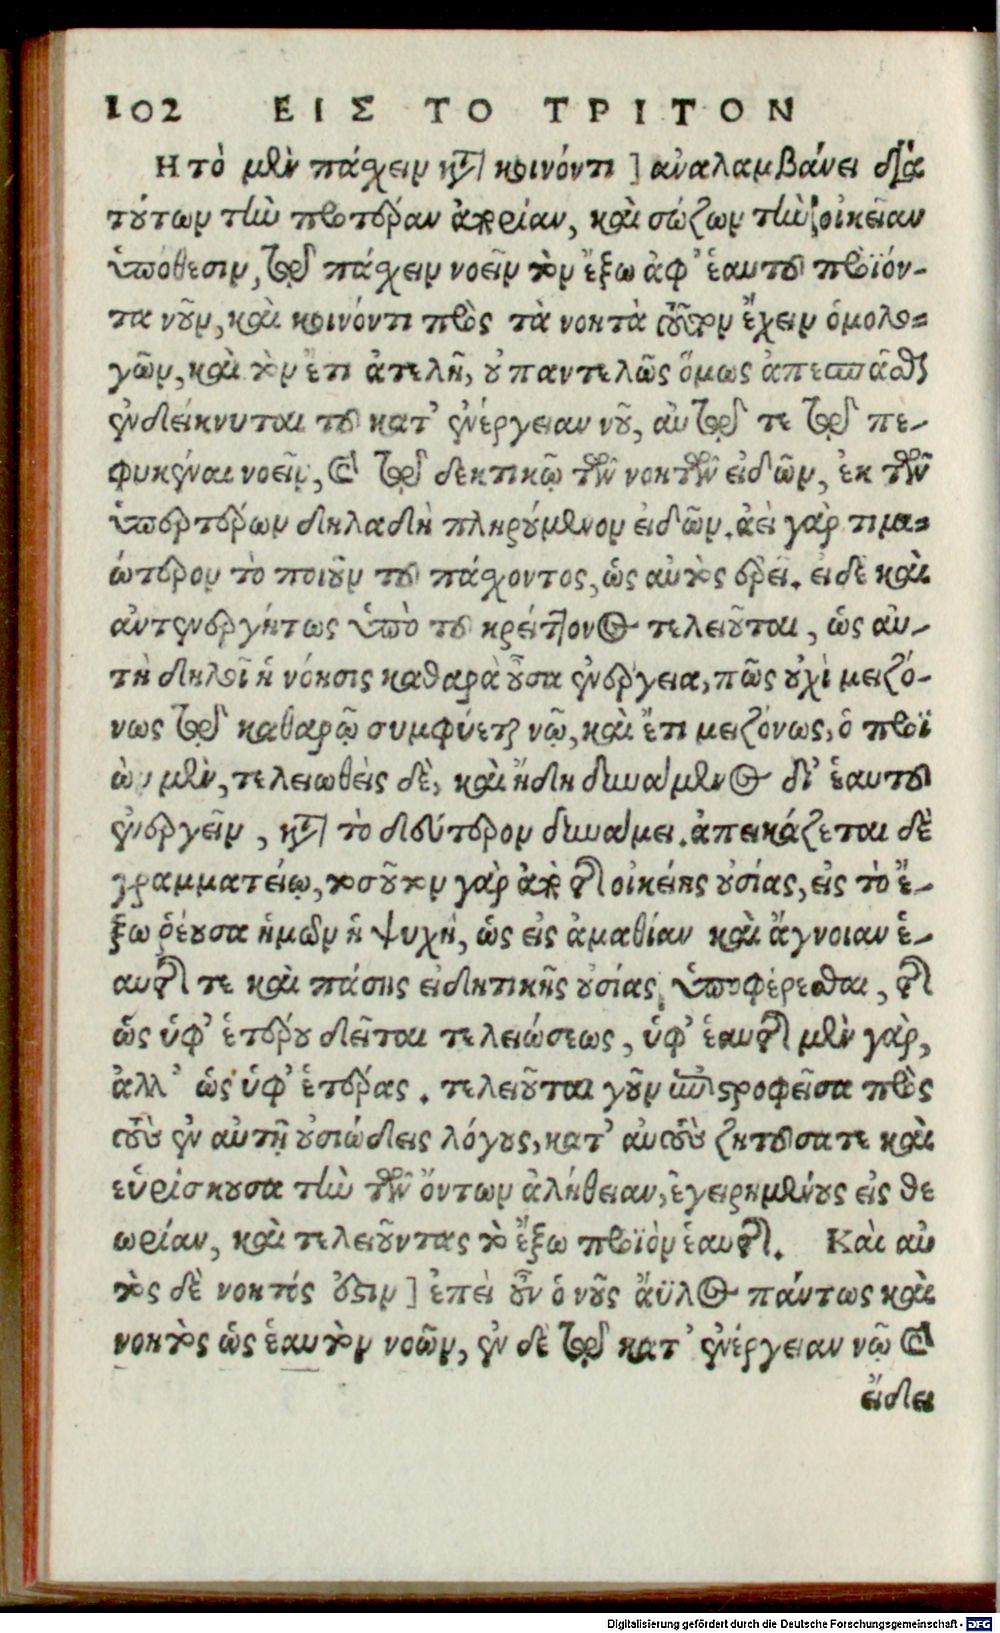 102 ΕΙΣ ΤΟ ΤΡΙΤΟΝ
Η τὸ μὲν πάσχειν κατὰ κοινόν τι] ἀναλαμβάνει διὰ
τούτων τὴν προτέραν ἀπορίαν, καὶ σώζων τὴν οἰκείαν
ὑπόθεσιν, τοῦ πάσχειν νοεῖν τὸν ἔξω ἀφ' ἑαυτοῦ προϊόν-
τα νοῦν, καὶ κοινόν τι πρὸς τὰ νοητὰ τοῦτον ἔχειν ὁμολο-
γῶν, καὶ τὸν ἔτι ἀτελῆ, οὐ παντελῶς ὅμως ἀπεσπᾶσθαι
ἐνδείκνυται τοῦ κατ' ἐνέργειαν νοῦ, αὐτῷ τε τῷ πε-
φυκέναι νοεῖν, καὶ τῷ δεκτικῷ τῶν νοητῶν εἰδῶν, ἐκ τῶν
ὑπερτέρων δηλαδὴ πληρούμενον εἰδῶν. ἀεὶ γὰρ τιμι-
ώτερον τὸ ποιοῦν τοῦ πάσχοντος, ὡς αὐτὸς ἐρεῖ. εἰ δὲ καὶ
αὐτενεργήτως ὑπὸ τοῦ κρείττονος τελειοῦται, ὡς αὐ-
τὴ δηλοῖ ἡ νόησις καθαρὰ οὖσα ἐνέργεια, πῶς οὐχὶ μειζό-
νως τῷ καθαρῷ συμφύεται νῷ, καὶ ἔτι μειζόνως, ὁ προϊ
ὼν μὲν, τελειωθεὶς δὲ, καὶ ἤδη δυνάμενος δι' ἑαυτοῦ
ἐνεργεῖν, κατὰ τὸ δεύτερον δυνάμει. ἀπεικάζεται δὲ
γραμματείῳ, τοσοῦτον γὰρ ἀπὸ τῆς οἰκείης οὐσίας, εἰς τὸ ἔ-
ξω ῥέουσα ἡμῶν ἡ ψυχὴ, ὡς εἰς ἀμαθίαν καὶ ἄγνοιαν ἑ-
αυτῆς τε καὶ πάσης εἰδητικῆς οὐσίας ὑποφέρεσθαι, τῆς
ὡς ὑφ' ἑτέρου δεῖται τελειώσεως, ὑφ' ἑαυτῆς μὲν γὰρ,
ἀλλ' ὡς ὑφ' ἑτέρας. τελειοῦται γοῦν ἐπιστροφεῖσα πρὸς
τοὺς ἐν αὐτῇ οὐσιώδεις λόγους, κατ' αὐτοὺς ζητοῦσα τε καὶ
εὑρίσκουσα τὴν τῶν ὄντων ἀλήθειαν, ἐγειρημένους εἰς θε
ωρίαν, καὶ τελειοῦντας τὸ ἔξω προϊὸν ἑαυτῆς. Καὶ αὐ
τὸς δὲ νοητός ἐστιν] ἐπεὶ οὖν ὁ νοῦς ἄϋλος πάντως καὶ
νοητὸς ὡς ἑαυτὸν νοῶν, ἐν δὲ τῷ κατ' ἐνέργειαν νῷ καὶ
εἴδει
Digitalisierung gefördert durch die Deutsche Forschungsgemeinschaft - DFG